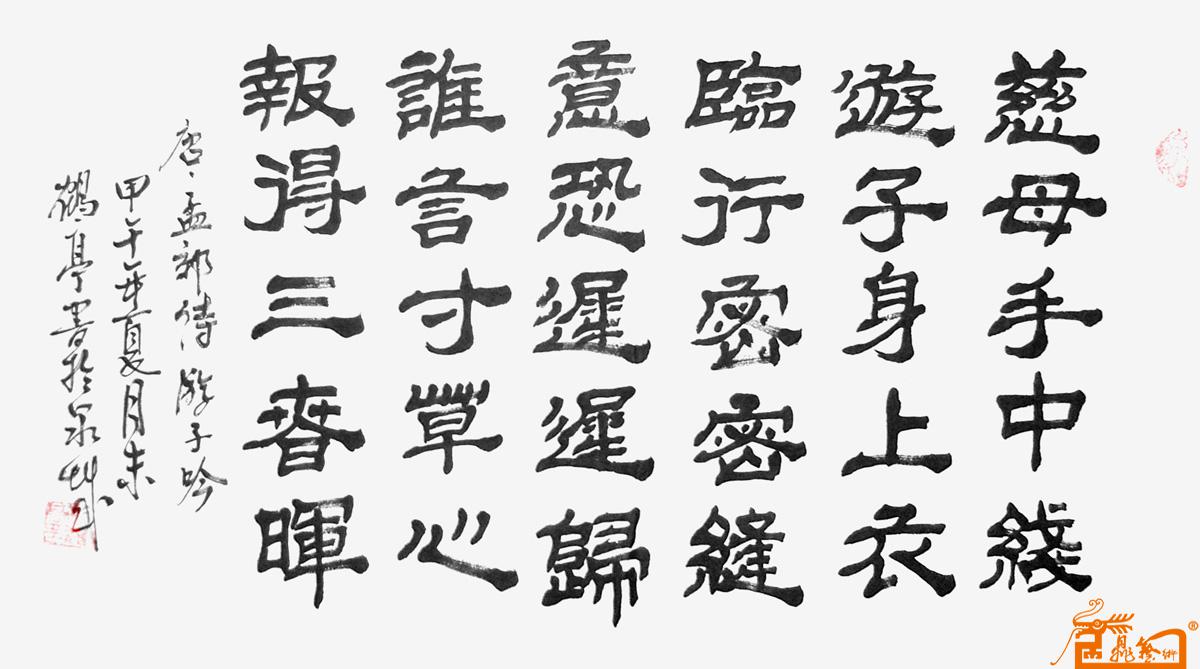 慈母手中綫
遊子身上衣
臨行密密縫
意恐遲遲歸
誰言寸草心
報得三春暉
唐孟郊诗游子吟
甲午年夏月末
鶴亭書於